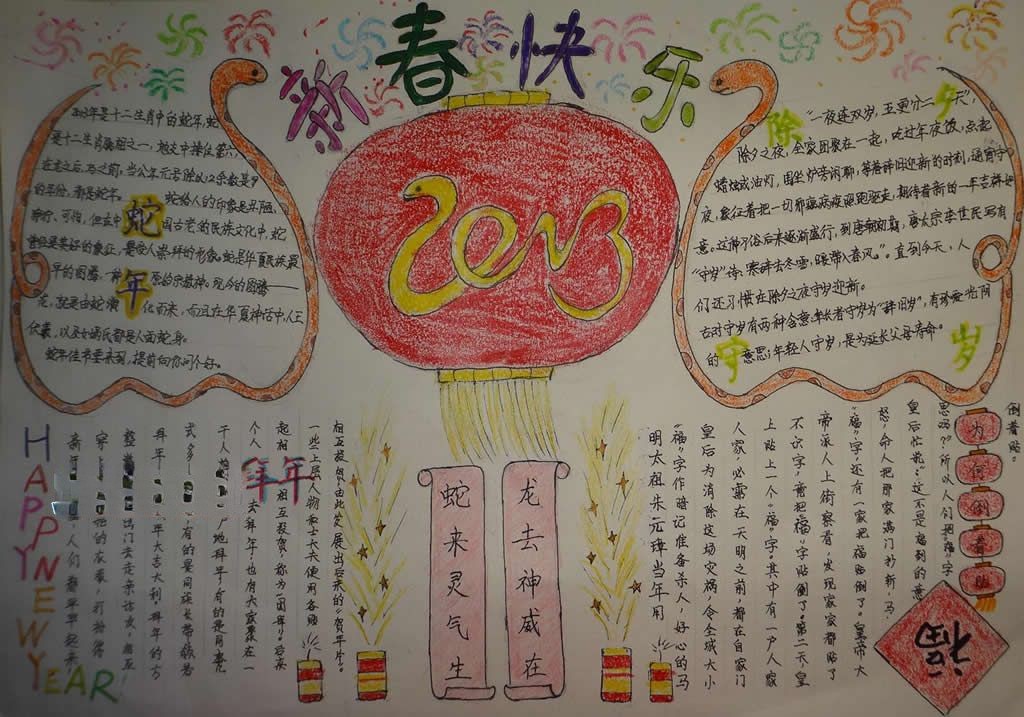 新春快乐
2013
2013年是十二生肖中的蛇年，蛇
是十二生肖属相之一，地支中排位第六，
在龙之后，马之前，当公年元号除以12余数是9
的年份，都是蛇年。 蛇给人的印象是丑陋、
狰狞、可怕，但在中国古老的民族文化中，蛇
曾经是美好的象征，是受人崇拜的形象。蛇是华夏民族最
早的图腾，一种原始宗教神。现今的图腾——
龙，就是由蛇演化而来，而且在华夏神话中人王
伏羲，以至女娲氏都是人面蛇身。
蛇年佳节要来到，提前向你问个好。
蛇年
除夕
守岁
“一夜连双岁，五更分二天”，
除夕之夜，全家团聚在一起，吃过年夜饭，点起
蜡烛或油灯，围坐炉旁闲聊，等着辞旧迎新的时刻，通宵守
夜，象征着把一切邪瘟病疫照跑驱走，期待着新的一年吉祥如
意。这种习俗后来逐渐盛行，到唐朝初期，唐太宗李世民写有
“守岁”诗：寒辞去冬雪，暖带入春风”。直到今天，人
们还习惯在除夕之夜守岁迎新。
古时守岁有两种含意：年长者守岁为“辞旧岁”，有珍爱光阴
的意思；年轻人守岁，是为延长父母寿命。
HAPPY NEW YEAR
拜年
新
人们都早早起来
穿
的衣着，打扮得
整
出门去走亲访友，相互
拜年
年大吉大利，拜年的方
式多
有的是同族长带领若
干人
地拜年；有的是同事
去拜年；也有大家聚在一
个人
起相
相互祝贺，称为“团拜”。后来
一些上层人物和士大夫便用各贴
相互投贺，由此发展出后来的“贺年片”。
龙去神威在
蛇来灵气生
为何倒着贴
福
明太祖朱元璋当年用
“福”字作暗记准备杀人，好心的马
皇后为消除这场灾祸，令全城大小
人家，必需在天明之前都在自家门
上贴上一个“福”字。其中有一户人家
不识字，竟把“福”字贴倒了。第二天皇
帝派人上街察看，发现家家都贴了
“福”字，还有一家把福贴倒了。皇帝大
怒，命人把那家满门抄斩，马
皇后忙说：“这不是福到的意
思吗？”所以人们把“福”字
倒着贴。